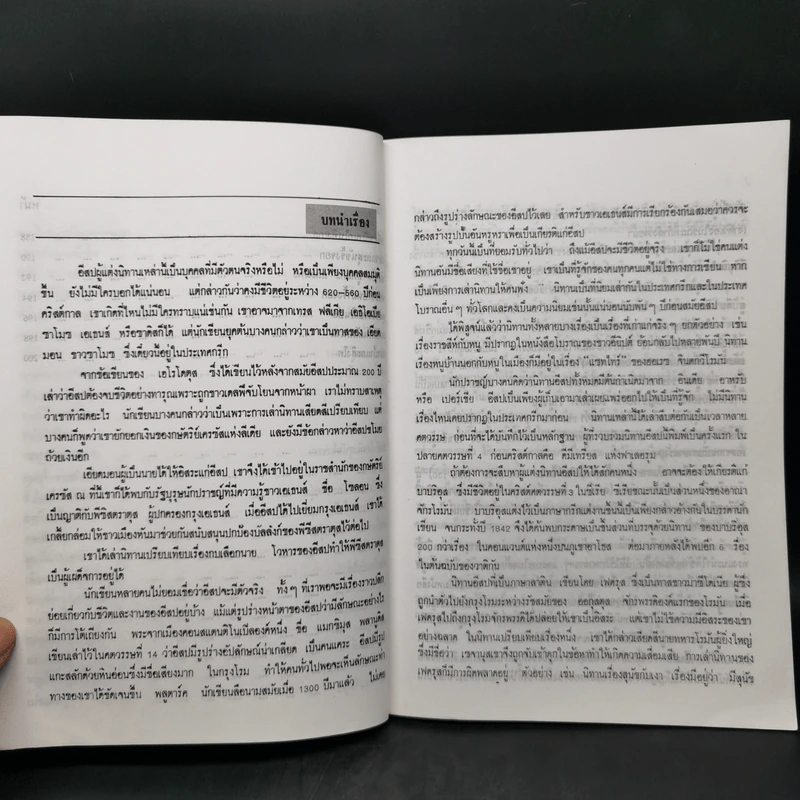 บทนำเรื่อง
อีสปผู้แต่งนิทานเหล่านี้เป็นบุคคลที่มีตัวตนจริงหรือไม่ หรือเป็นเพียงบุคคลสมมุติ
ขึ้น ยังไม่มีใครบอกได้แน่นอน แต่กล่าวกันว่าคงมีชีวิตอยู่ระหว่าง 620–560 ปีก่อน
คริสต์กาล เขาเกิดที่ไหนไม่มีใครทราบแน่เช่นกัน เขาอาจมาจากเทรส ฟลีเกีย เอธิโอเปีย
ซาโมซ เอเธนส์ หรือซาดิสก็ได้ แต่นักเขียนยุคต้นบางคนกล่าวว่าเขาเป็นทาสของ เอียด
มอน ชาวซาโมซ ซึ่งเดี๋ยวนี้อยู่ในประเทศกรีก
จากข้อเขียนของ เฮโรโดตุส ซึ่งได้เขียนไว้หลังจากสมัยอีสปประมาณ 200 ปี
เล่าว่าอีสปต้องจบชีวิตอย่างทารุณเพราะถูกชาวเดลฟีจับโยนจากหน้าผา เราไม่ทราบสาเหตุ
ว่าเขาทำผิดอะไร นักเขียนบางคนกล่าวว่าเป็นเพราะการเล่านิทานเสียดสีเปรียบเทียบ แต่
บางคนก็พูดว่าเขายักยอกเงินของกษัตริย์เครซัสแห่งลีเดีย และยังมีข้อกล่าวหาว่าอีสปขโมย
ถ้วยเงินอีก
เอียดมอนผู้เป็นนายได้ให้อิสระแก่อีสป เขาจึงได้เข้าไปอยู่ในราชสำนักของกษัตริย์
เครซัส ณ ที่นี้เขาก็ได้พบกับรัฐบุรุษนักปราชญ์ที่มีความรู้ชาวเอเธนส์ ชื่อ โซลอน ซึ่ง
เป็นญาติกับพิซิสตราตุส ผู้ปกครองกรุงเอเธนส์ เมื่ออีสปได้ไปเยี่ยมกรุงเอเธนส์ เขาได้
เกลี้ยกล่อมให้ชาวเมืองหันมาช่วยกันสนับสนุนปกป้องบัลลังก์ของพิซิสตราตุสไว้ต่อไป
เขาได้เล่านิทานเปรียบเทียบเรื่องกบเลือกนาย โวหารของอีสปทำให้พิซิสตราตุส
เป็นผู้เผด็จการอยู่ได้
นักเขียนหลายคนไม่ยอมเชื่อว่าอีสปจะมีตัวจริง ทั้งๆ ที่เราพอจะมีเรื่องราวปลีก
ย่อยเกี่ยวกับชีวิตและงานของอีสปอยู่บ้าง แม้แต่รูปร่างหน้าตาของอีสปว่ามีลักษณะอย่างไร
ก็มีการโต้เถียงกัน พระจากเมืองคอนสแตนติโนเปิลองค์หนึ่ง ชื่อ แมกซิมุส พลานูดิส
เขียนเล่าไว้ในศตวรรษที่ 14 ว่าอีสปมีรูปร่างอัปลักษณ์น่าเกลียด เป็นคนแคระ อีสปมีรูป
แกะสลักด้วยหินอ่อนซึ่งมีชื่อเสียงมาก ในกรุงโรม ทำให้คนทั่วไปพอจะเห็นลักษณะท่า
ทางของเขาได้ชัดเจนขึ้น พลูตาร์ค นักเขียนลือนามสมัยเมื่อ 1300 ปีมาแล้ว ไม่เคย
กล่าวถึงรูปร่างลักษณะของอีสปไว้เลย สำหรับชาวเอเธนส์มีการเรียกร้องกันเสมอว่าควรจะ
ต้องสร้างรูปปั้นอันหรูหราเพื่อเป็นเกียรติแก่อีสป
ทุกวันนี้เป็นที่ยอมรับทั่วไปว่า ถึงแม้อีสปจะมีชีวิตอยู่จริง เขาก็ไม่ใช่คนแต่ง
นิทานอันมีชื่อเสียงที่ใช้ชื่อเขาอยู่ เขาเป็นที่รู้จักของคนทุกคนแต่ไม่ใช่ทางการเขียน หาก
เป็นเพียงการเล่านิทานให้คนฟัง นิทานเป็นที่นิยมเล่ากันในประเทศกรีกและในประเทศ
โบราณอื่นๆ ทั่วโลกและคงเป็นความนิยมเช่นนั้นแน่นอนนับพันๆ ปีก่อนสมัยอีสป
ได้พิสูจน์แล้วว่านิทานทั้งหลายบางเรื่องเป็นเรื่องที่เก่าแก่จริงๆ ยกตัวอย่าง เช่น
เรื่องราชสีห์กับหนู มีปรากฏในหนังสือโบราณของชาวอียิปต์ ย้อนกลับไปหลายพันปี นิทาน
เรื่องหนูบ้านนอกกับหนูในเมืองก็มีอยู่ในเรื่อง "แซทไทร์" ของฮอเรซ จินตกวีโรมัน
นักปราชญ์บางคนคิดว่านิทานอีสปทั้งหมดมีต้นกำเนิดมาจาก อินเดีย อาหรับ
หรือ เปอร์เซีย อีสปเป็นเพียงผู้เก็บเอามาเล่าเผยแพร่ออกไปให้เป็นที่รู้จัก ไม่มีนิทาน
เรื่องไหนเคยปรากฏในประเทศกรีกมาก่อน นิทานเหล่านี้ได้เล่าสืบต่อกันเป็นเวลาหลาย
ศตวรรษ ก่อนที่จะได้บันทึกไว้เป็นหลักฐาน ผู้ที่รวบรวมนิทานอีสปพิมพ์เป็นครั้งแรก ใน
ปลายศตวรรษที่ 4 ก่อนคริสต์กาลคือ ดีมีเทรียส แห่งฟาเลอรุม
ถ้าต้องการจะสืบหาผู้แต่งนิทานอีสปให้ได้สักคนหนึ่ง อาจจะต้องให้เกียรติแก่
บาบริอุส ซึ่งมีชีวิตอยู่ในคริสต์ศตวรรษที่ 3 ในซีเรีย ซีเรียขณะนั้นเป็นส่วนหนึ่งของอาณา
จักรโรมัน บาบริอุสแต่งไว้เป็นภาษากรีกแต่งานชิ้นนั้นเป็นเพียงกล่าวอ้างกันในบรรดานัก
เขียน จนกระทั่งปี 1842 จึงได้ค้นพบกระดาษเป็นชิ้นส่วนที่บรรจุด้วยนิทาน ของบาบริอุส
200 กว่าเรื่อง ในคอนแวนต์แห่งหนึ่งบนภูเขาอาโธส ต่อมาภายหลังได้พบอีก 6 เรื่อง
ในต้นฉบับของวาติกัน
นิทานอีสปที่เป็นภาษาลาติน เขียนโดย เฟดรุส ซึ่งเป็นทาสชาวมาซิโดเนีย ผู้ซึ่ง
ถูกนำตัวไปยังกรุงโรมระหว่างรัชสมัยของ ออกุสตุส จักรพรรดิองค์แรกของโรมัน เมื่อ
เฟดรุสไปถึงกรุงโรมจักรพรรดิก็ได้ปล่อยให้เขาเป็นอิสระ แต่เขาไม่ใช้ความมีอิสระของเขา
อย่างฉลาด ในนิทานเปรียบเทียบเรื่องหนึ่ง เขาได้กล่าวเสียดสีนายทหารโรมันผู้ยิ่งใหญ่
ซึ่งมีชื่อว่า เซจานุสเขาจึงถูกจับเข้าคุกในข้อหาทำให้เกิดความเสื่อมเสีย การเล่านิทานของ
เฟดรุสก็มีการผิดพลาดอยู่ ตัวอย่าง เช่น นิทานเรื่องสุนัขกับเงา เรื่องมีอยู่ว่า มีสุนัข